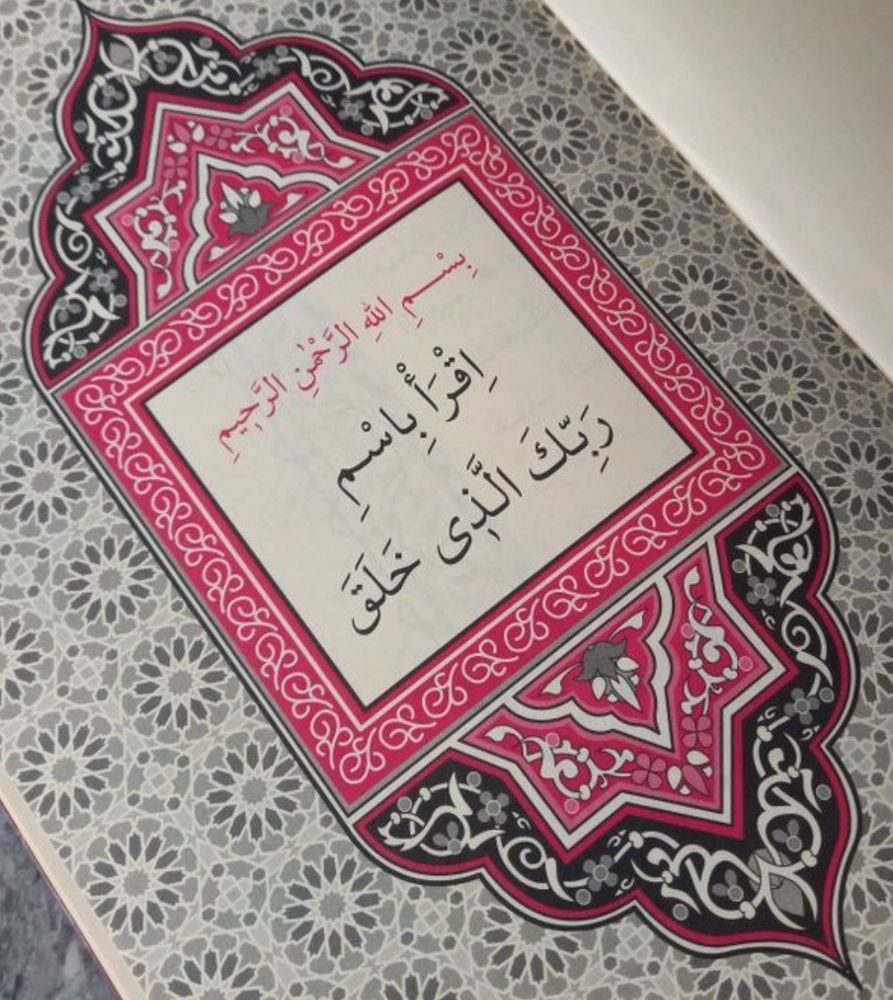 بِسْمِ اللهِ الرَّحْمٰنِ الرَّحِيمِ
اِقْرَأْ بِاسْمِ
رَبِّكَ الَّذٖى خَلَقَ